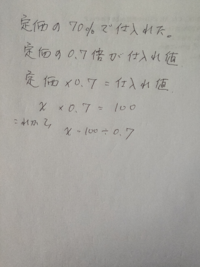 定価の70%で仕入れた。
定価の0.7倍が仕入れ値
定価×0.7=仕入れ値
x×0.7=100
これから
x=100÷0.7